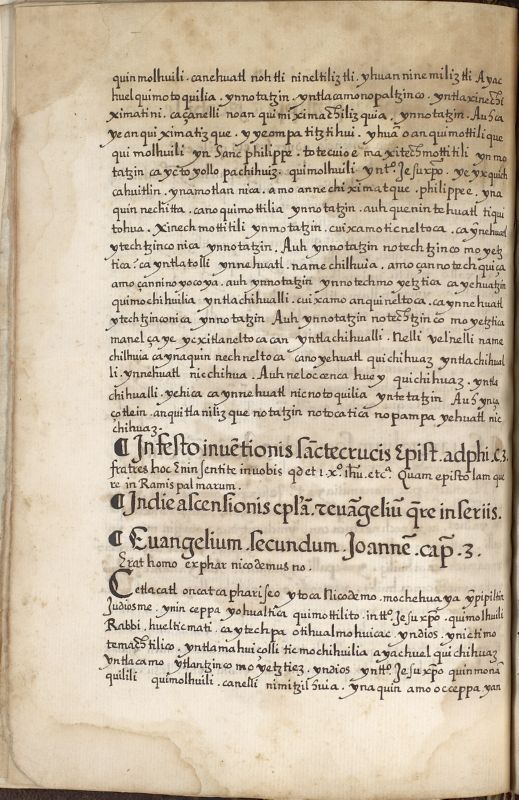 quin molhuili. canehuatl nohtli nineltiliztli. yhuan nine miliztli Ayac
huel quimotoquilia. ynnotatzin. yntlacamonopaltzinco. yntlaxinechi
ximatini. caçanelli no an qui mi ximachiliz quia. ynnotatzin. Auh ça
ye an qui ximatiz que. y ye compa titztihui. yhuā o an quimottili que
qui molhuili yn Sanc philippe. totecuioe ma xitechmottitili yn mo
tatzin ca yc to yollo pachihuiz. quimolhuili yntº. Jesuxpō. ye yxquich
cahuitlin. ynamotlan nica. amo anne chi ximatque. philippe. yna
quin nechitta. cano quimottilia ynnotatzin. auh quenin tehuatl tiqui
tohua. Xinech mottitili ynmotatzin. cuix amo ticneltoca. ca ynehuatl
ytechtzinco nica ynnotatzin. Auh ynnotatzin notechtzinco moyetz
tica? ca yntlatolli ynnehuatl. namechilhuia. amo çan notech quiça
amo çanninoyocoya. auh ynnotatzin ynnotechmo yetztica ca yehuatzin
quimochihuilia yntlachihualli. cuix amo anquineltoca. ca ynnehuatl
ytechtzinconica ynnotatzin Auh ynnotatzin notechtzinco moyetztica
manel ça ye yc xitlaneltocacan yntlachihualli. Nelli velnelli name
chilhuia caynaquin nechneltoca cano yehuatl quichihuaz yntlachihual
li. ynnehuatl nicchihua. Auh neloc cenca huey quichihuaz. yntla
chihualli. yehica ca ynnehuatl nicnotoquilia yntetatzin Auh ynça
çotlein. anquitlaniliz que notatzin notocatica nopampa yehuatl nic
chihuaz.
¶ In festo inuētionis sāctecrucis Epist. adphi. c. 2.
fratres hoc Enin sentite invobis qd et i xº. ihū. etcª. Quam epistolam que
re in Ramis palmarum.
¶ In die ascensionis epla. τ euāgeliū qre in seriis.
¶ Euangelium. secundum. Joannē. cap. 3.
Erat homo ex phar nicodemus no.
Cetlacatl oncatca phariseo ytoca Nicodemo. mochehuaya ypipiltin
Judiosme. ynin ceppa yohualtica quimottilito. intº. Jesuxpō. quimolhuili
Rabbi. huelticmati. ca ytechpa otihualmohuicac yndios. ynietimo
temachtilico. yntlamahuiçolli ticmochihuilia ayachuel quichihuaz
yntlacamo. ytlantzinco moyetztiez. yndios ynttº. Jesuxpō quinmonā
quilili quimolhuili. canelli nimitzilhuia. ynaquin amo occeppa yan